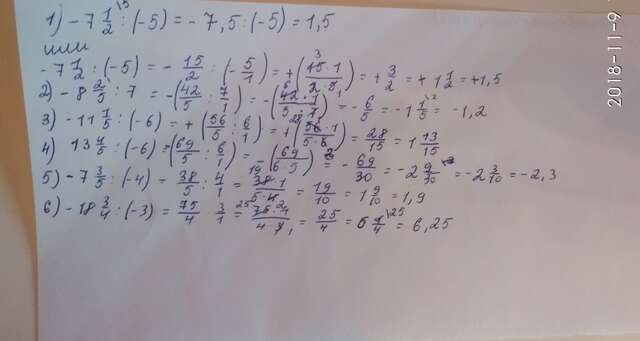 1) - 7 1/2 : (-5) = - 7,5 : (-5) = 1,5
или
- 7 1/2 : (-5) = - 15/2 : (- 5/1) = + (15·1/2·5) = + 3/2 = + 1 1/2 = + 1,5
2) - 8 2/5 : 7 = - (42/5 : 7/1) = - (42·1/5·7) = - 6/5 = - 1 1/5 = - 1,2
3) - 11 1/5 : (-6) = + (56/5 : 6/1) = + (56·1/5·6) = 28/15 = 1 13/15
4) 13 4/5 : (-6) = (69/5 : 6/1) = - (69/6·5) = - 69/30 = - 2 9/30 = - 2 3/10 = - 2,3
5) - 7 3/5 : (-4) = 38/5 : 4/1 = 38·1/5·4 = 19/10 = 1 9/10 = 1,9
6) - 18 3/4 : (-3) = 75/4 3/1 = 75·1/4·3 = 25/4 = 6 1/4 = 6,25
2018-11-9